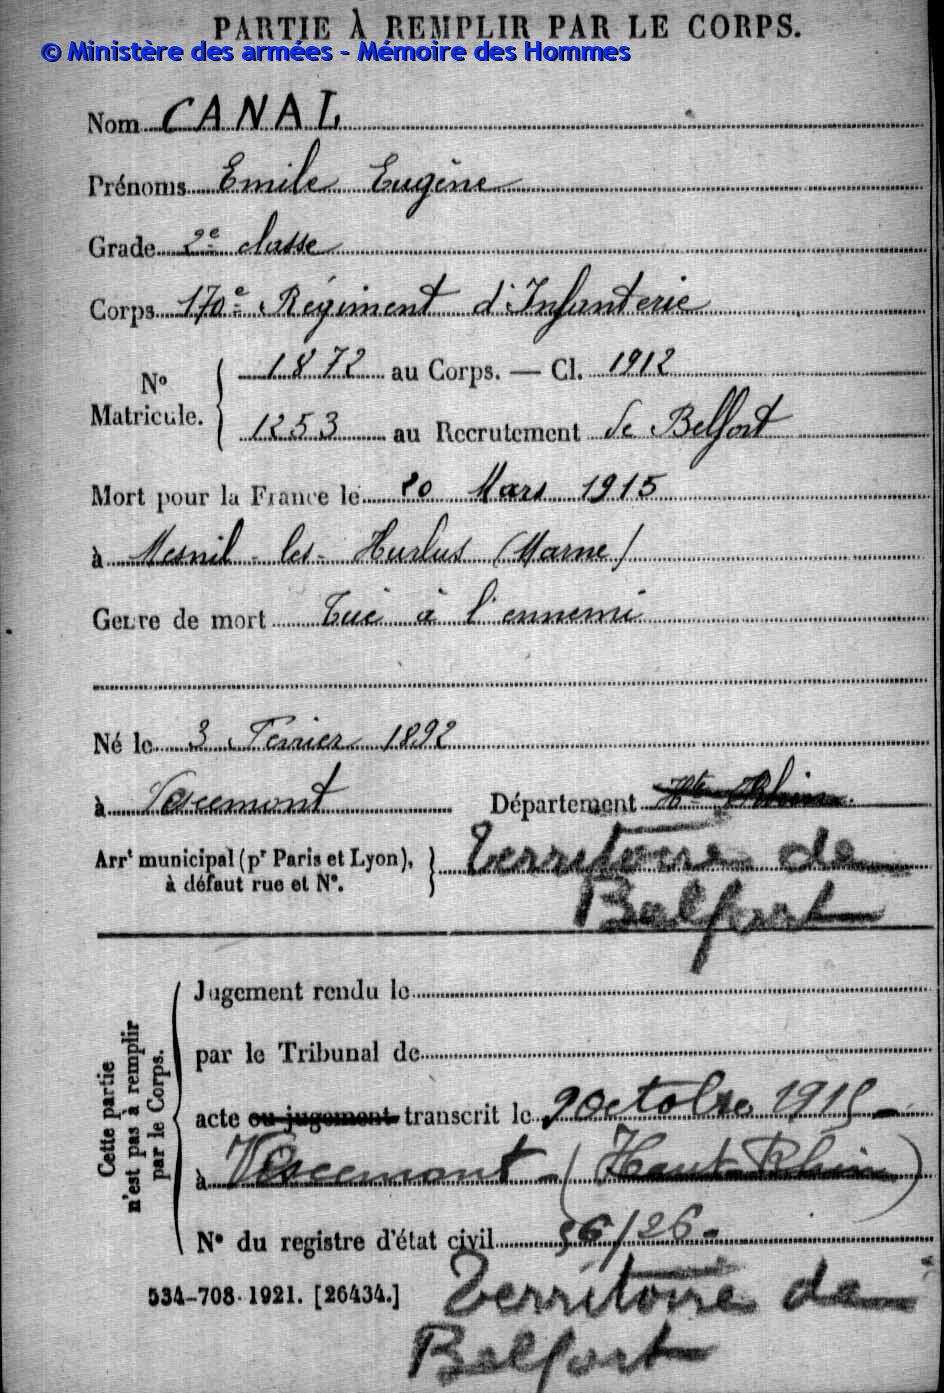 PARTIE À REMPLIR PAR LE CORPS.
© Ministère des armées - Mémoire des Hommes
Nom CANAL
Prénoms Emile Eugène
Grade 2e classe
Corps 170e Régiment d'Infanterie
No Matricule. 1872 au Corps. — Cl. 1912
1253 au Recrutement de Belfort
Mort pour la France le 20 Mars 1915
à Mesnil-les-Hurlus (Marne)
Genre de mort Tué à l'ennemi
Né le 3 Février 1892
à Vescemont Département Hte Rhin
Arrt municipal (pr Paris et Lyon), à défaut rue et No. Territoire de
Belfort
Cette partie n'est pas à remplir par le Corps.
Jugement rendu le
par le Tribunal de
acte ou jugement transcrit le 9 octobre 1915
à Vescemont - (Haut-Rhin)
No du registre d'état civil 56/26
534-708. 1921. [26434.] Territoire de
Belfort